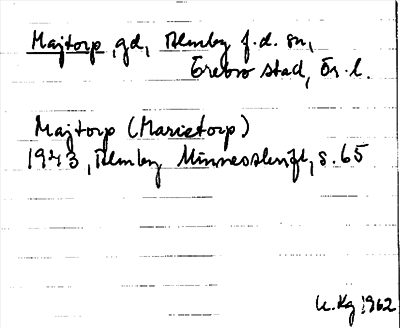 Majtorp, gd, Almby f.d. sn,
Örebro stad, Ör. l.
Majtorp (Marietorp)
1943, Almby Minnesskrift, s. 65
U. Kg 1962